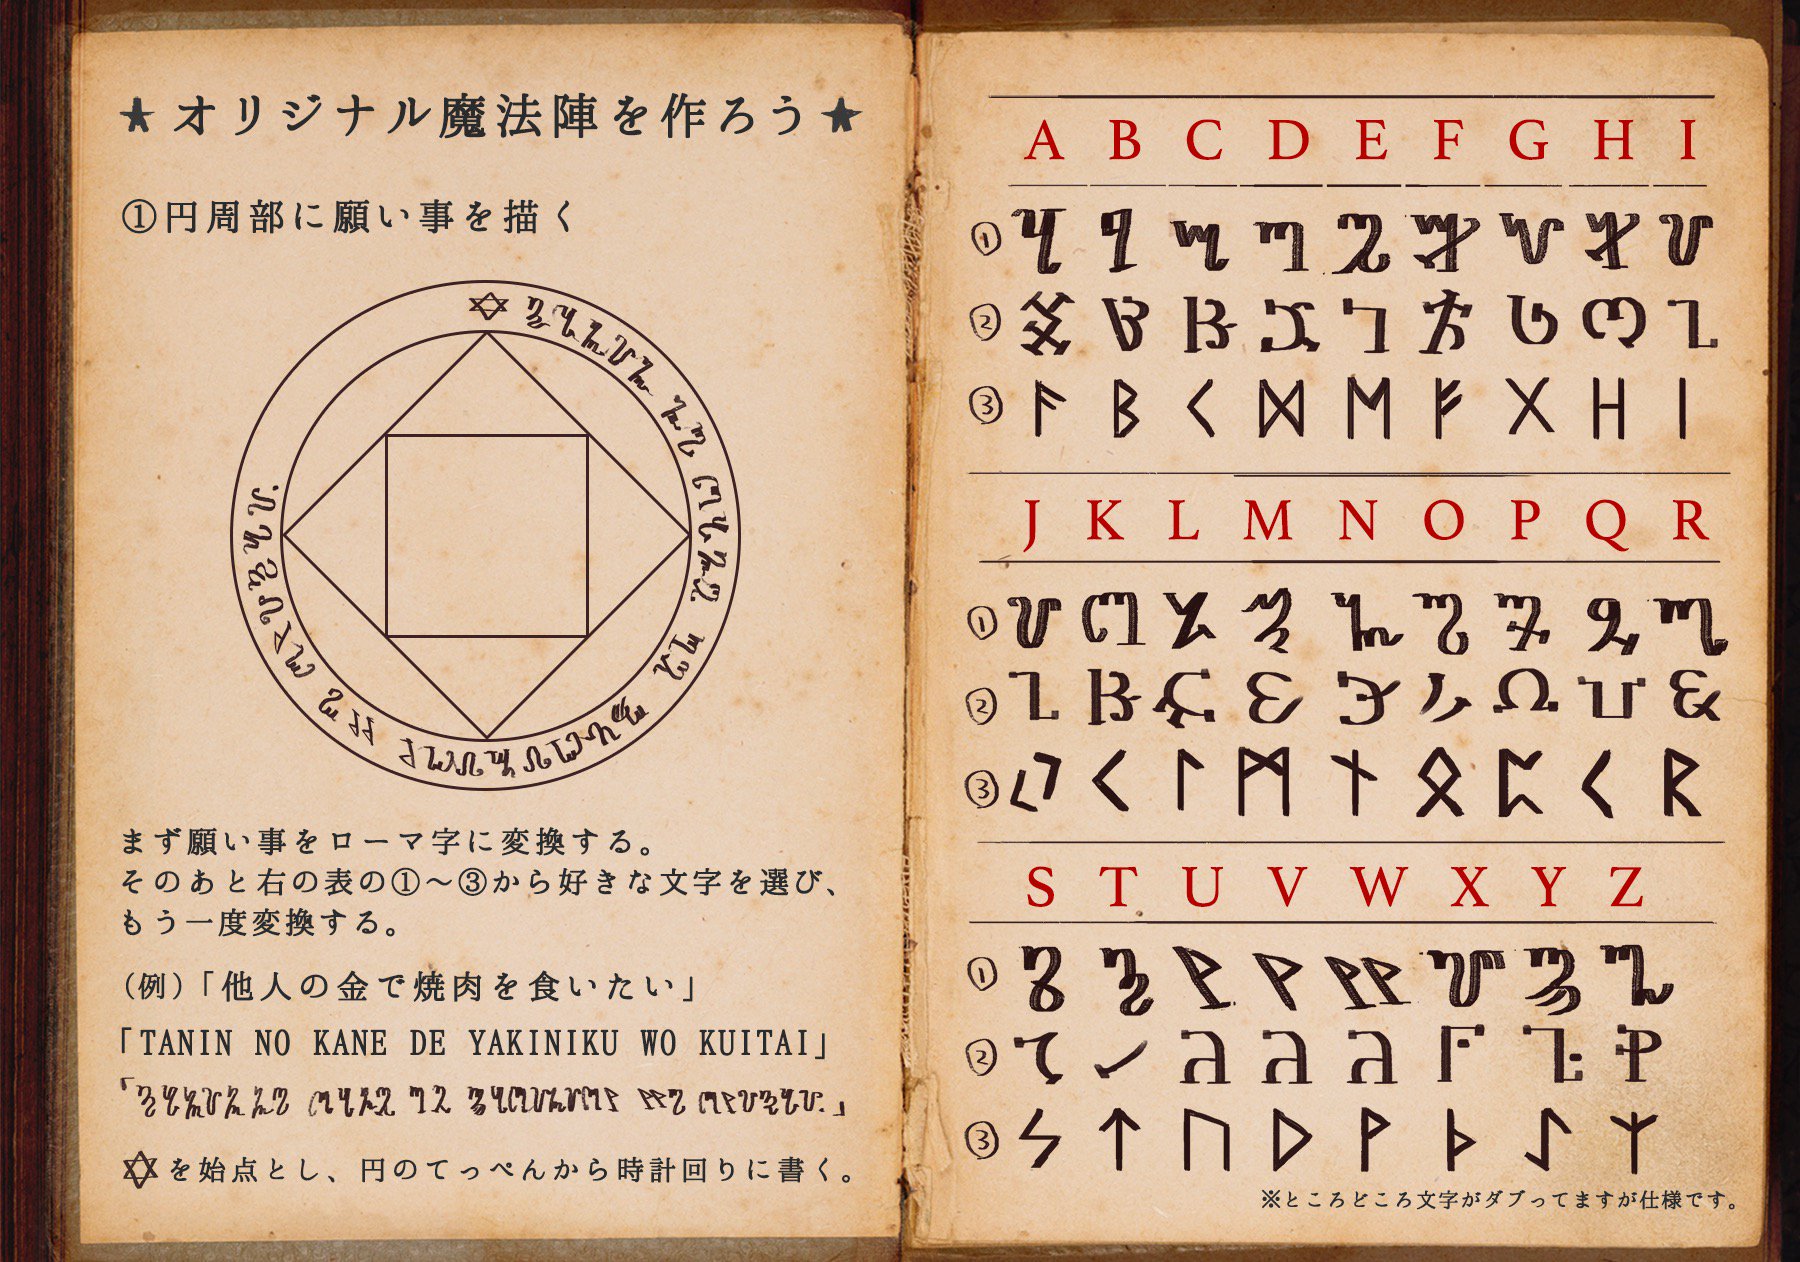 ★オリジナル魔法陣を作ろう★
①円周部に願い事を描く
まず願い事をローマ字に変換する。
そのあと右の表の①～③から好きな文字を選び、
もう一度変換する。
（例）「他人の金で焼肉を食いたい」
「TANIN NO KANE DE YAKINIKU WO KUITAI」
✡を始点とし、円のてっぺんから時計回りに書く。
A B C D E F G H I
①
②
③
J K L M N O P Q R
①
②
③
S T U V W X Y Z
①
②
③
※ところどころ文字がダブってますが仕様です。